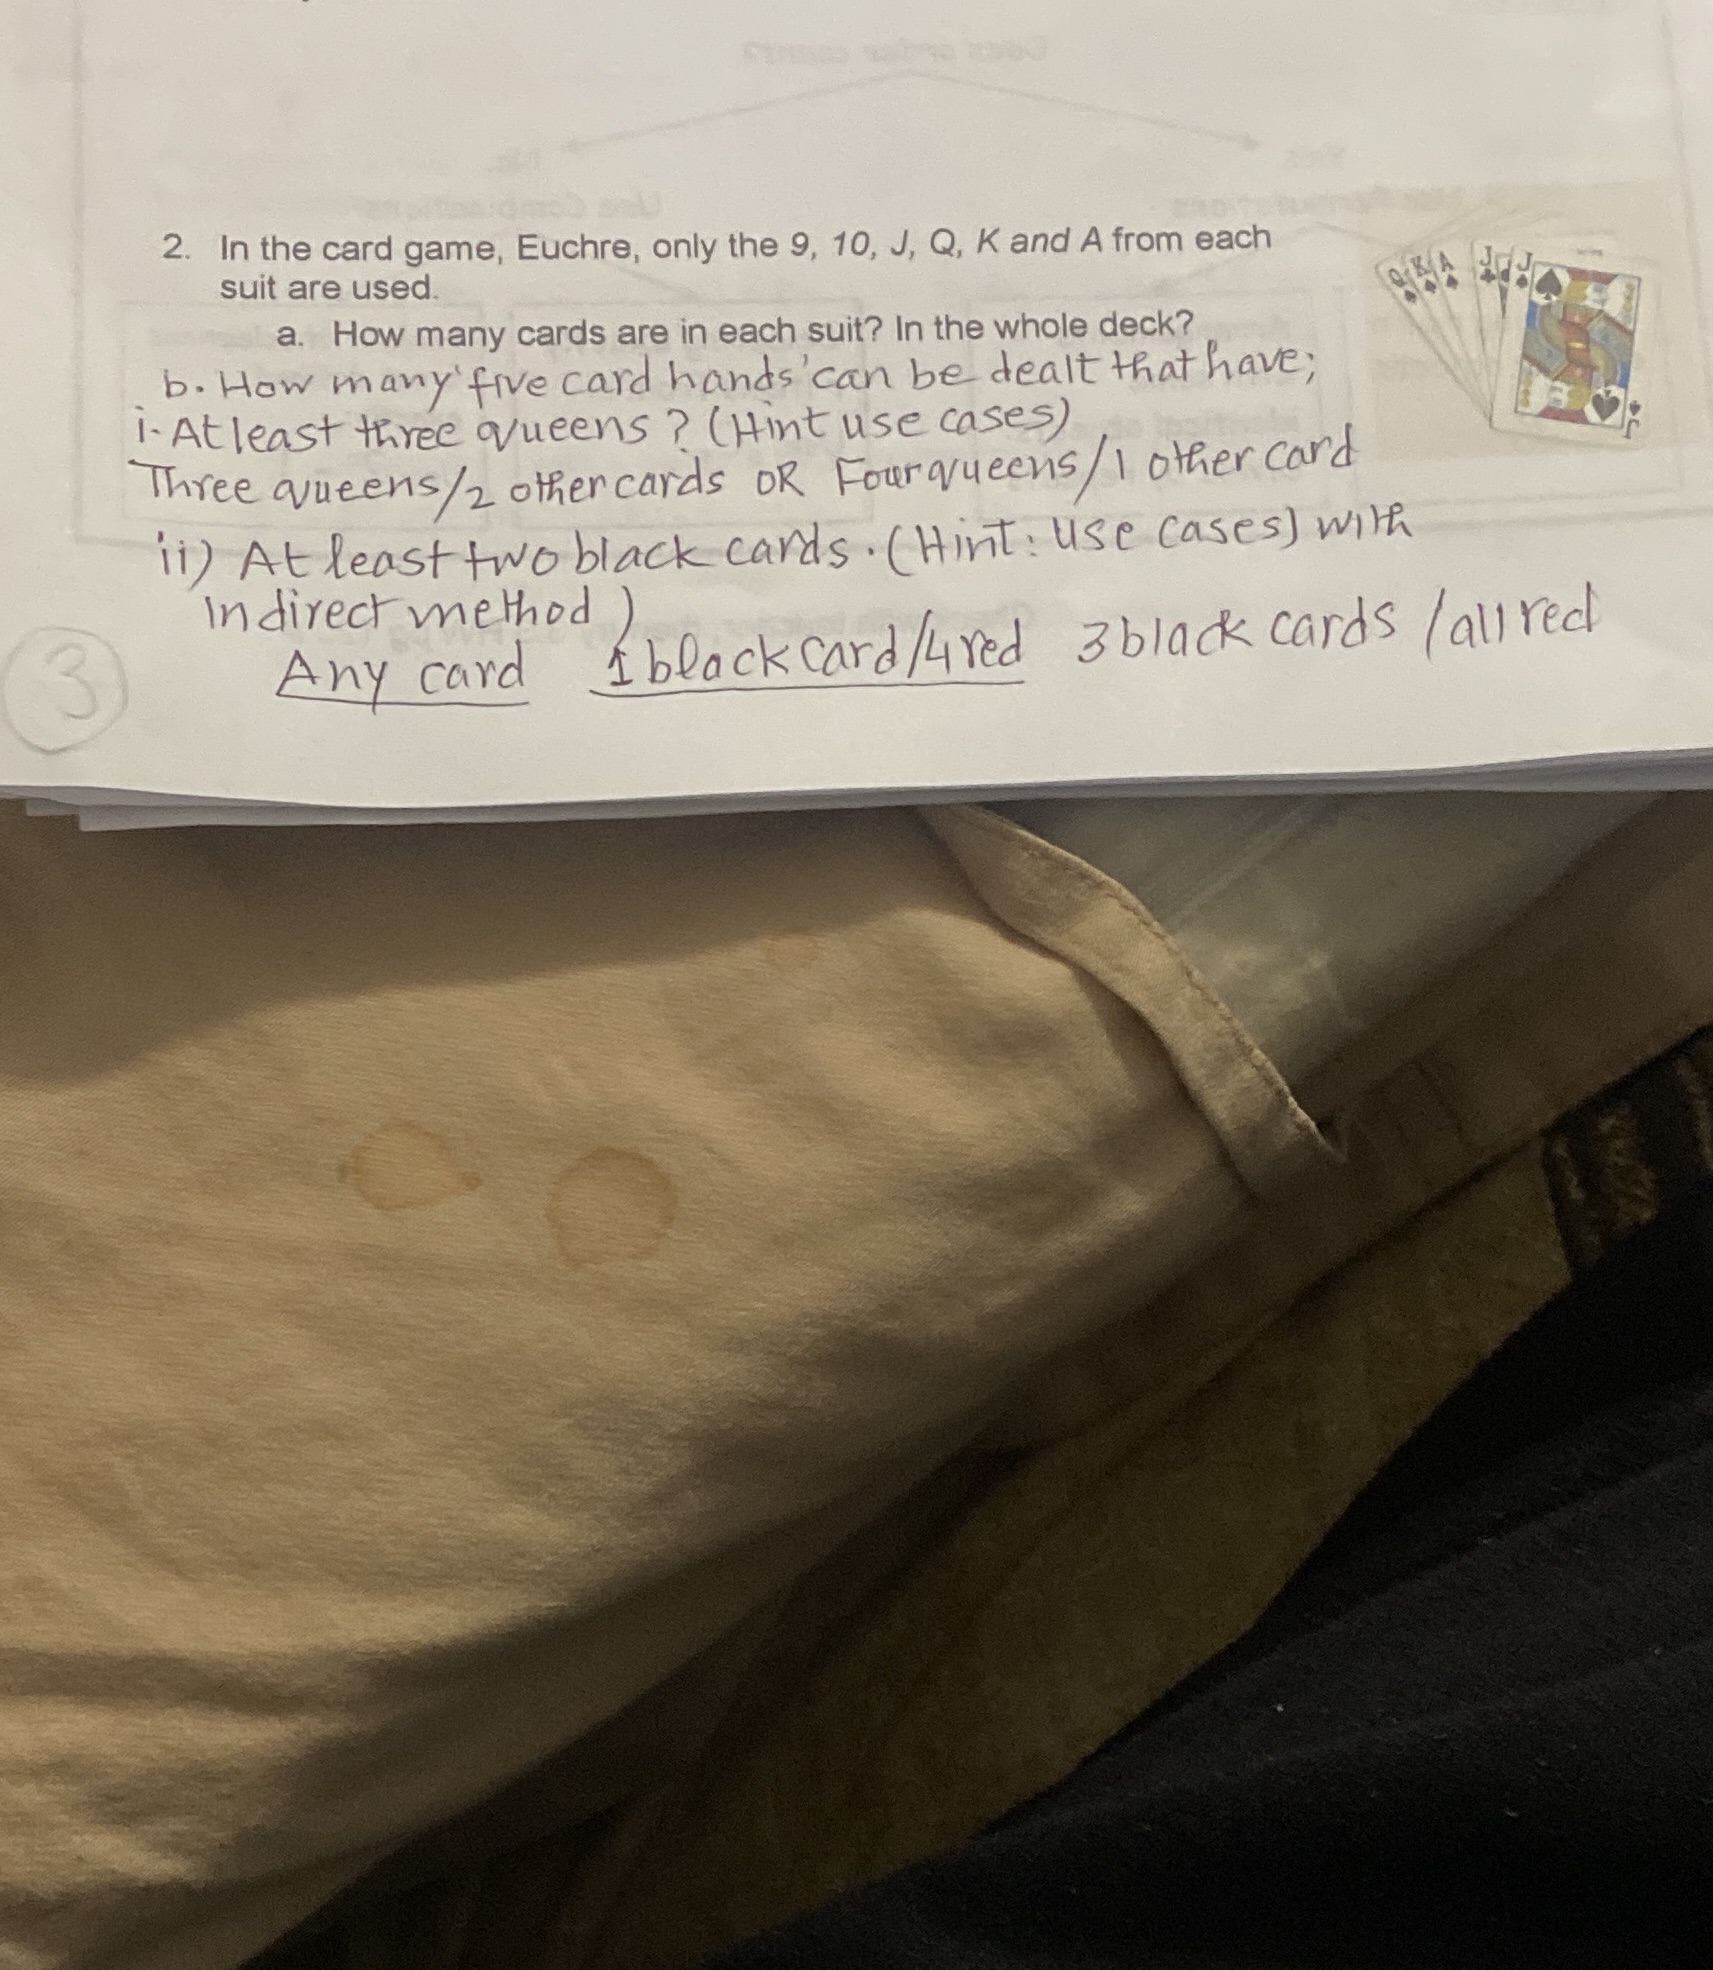 2. In the card game, Euchre, only the 9, 10, J, Q, K and A from each
suit are used.
a. How many cards are in each suit? In the whole deck?
b. How many five card hands can be dealt that have;
i. At least three queens? (Hint use cases)
Three queens/2 other cards OR Four queens/1 other card
ii) At least two black cards. (Hint: Use cases) with
Indirect method)
Any card 1 black card/4 red 3 black cards /all red
3
Q K A J J
J